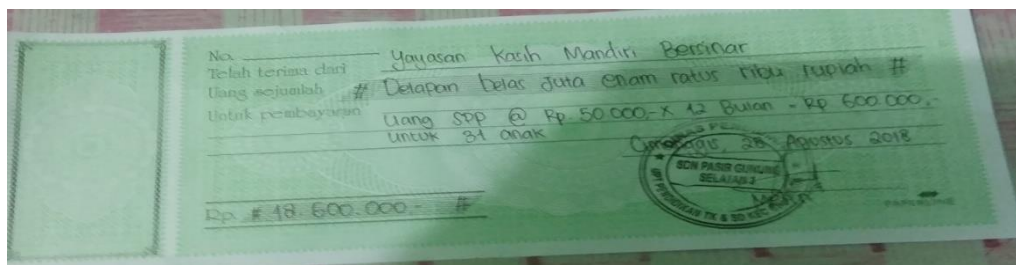 No.
Telah terima dari Yayasan Kasih Mandiri Bersinar
Uang sejumlah # Delapan belas Juta enam ratus ribu rupiah #
Untuk pembayaran Uang SPP @ Rp. 50.000,- X 12 Bulan = Rp 600.000,-
untuk 31 anak
Cimanggis, 28 Agustus 2018
SDN PASIR GUNUNG
SELATAN 2
Rp. # 18.600.000,- #
PAPERLINE